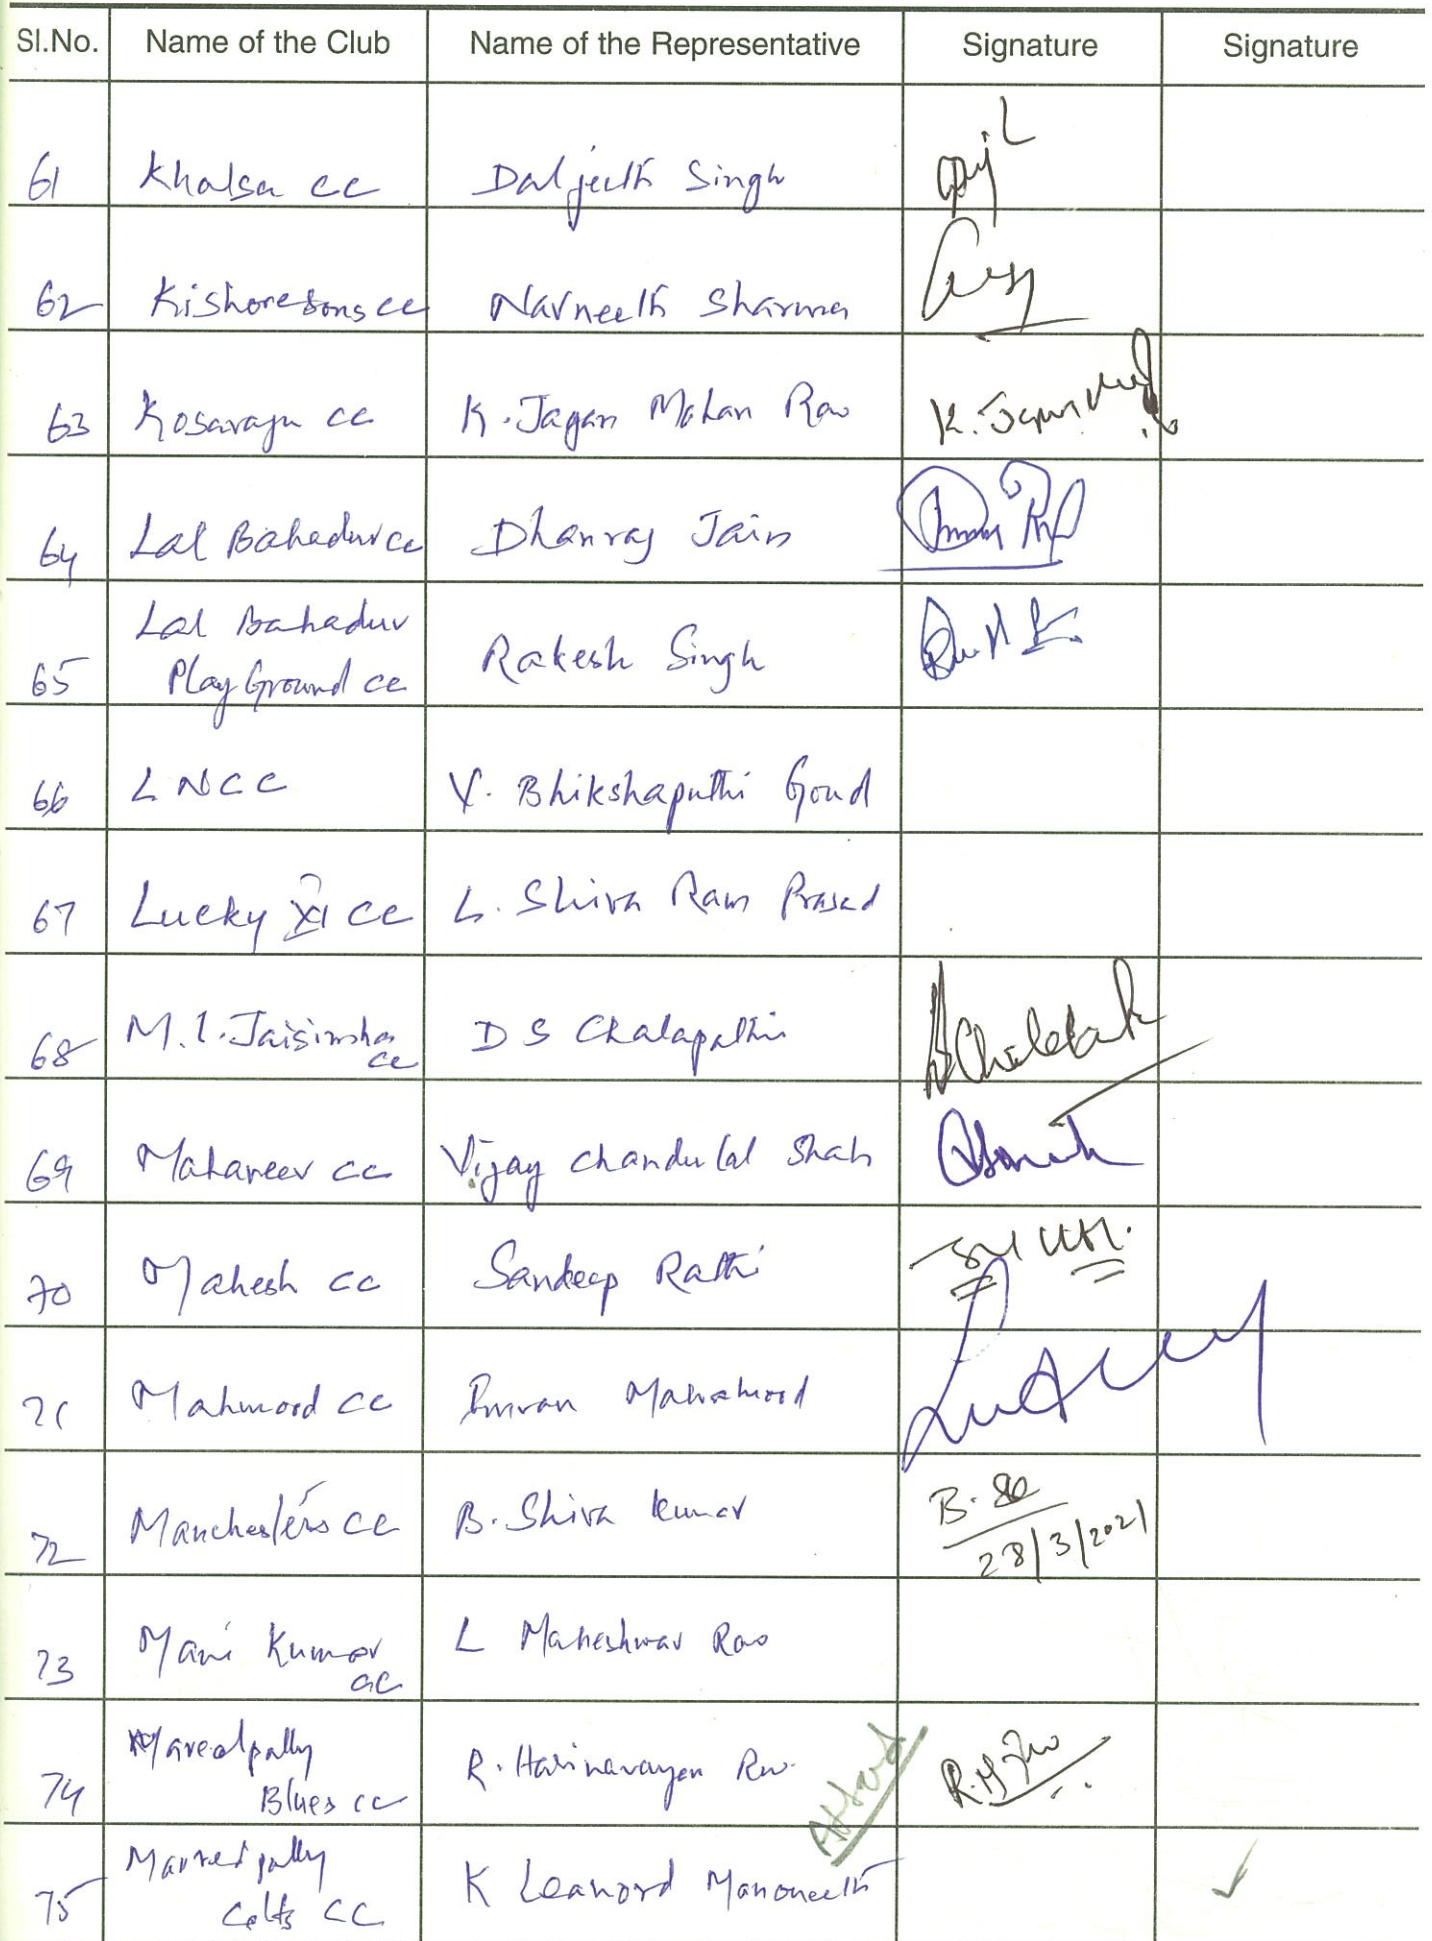 Sl.No. Name of the Club Name of the Representative Signature Signature
61 Khalsa CC Daljeeth Singh
62 Kishoresons CC Navneeth Sharma
63 Kosaraju CC K. Jagan Mohan Rao K. Jagan
64 Lal Bahadur CC Dhanraj Jain
Lal Bahadur
65 Play Ground CC Rakesh Singh
66 L N C C Y. Bhikshapathi Goud
67 Lucky XI CC L. Shiva Ram Prasad
68 M.L. Jaisimha D S Chalapathi
CC
69 Mahaveer CC Vijay Chandulal Shah
70 Mahesh CC Sandeep Rathi
71 Mahmood CC Imran Mahamood
72 Manchesters CC B. Shiva Kumar B. Se
28/3/2021
73 Mani Kumar L Maheshwar Rao
CC
Maredpally
74 Blues CC R. Harinarayan Rao
Marredpally
75 Celts CC K Leanord Manoneeth